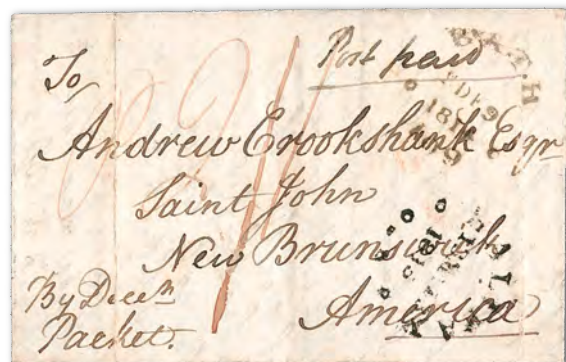 Post paid
To
Andrew Crookshank Esqr
Saint John
New Brunswick
America
By Decem
Packet.